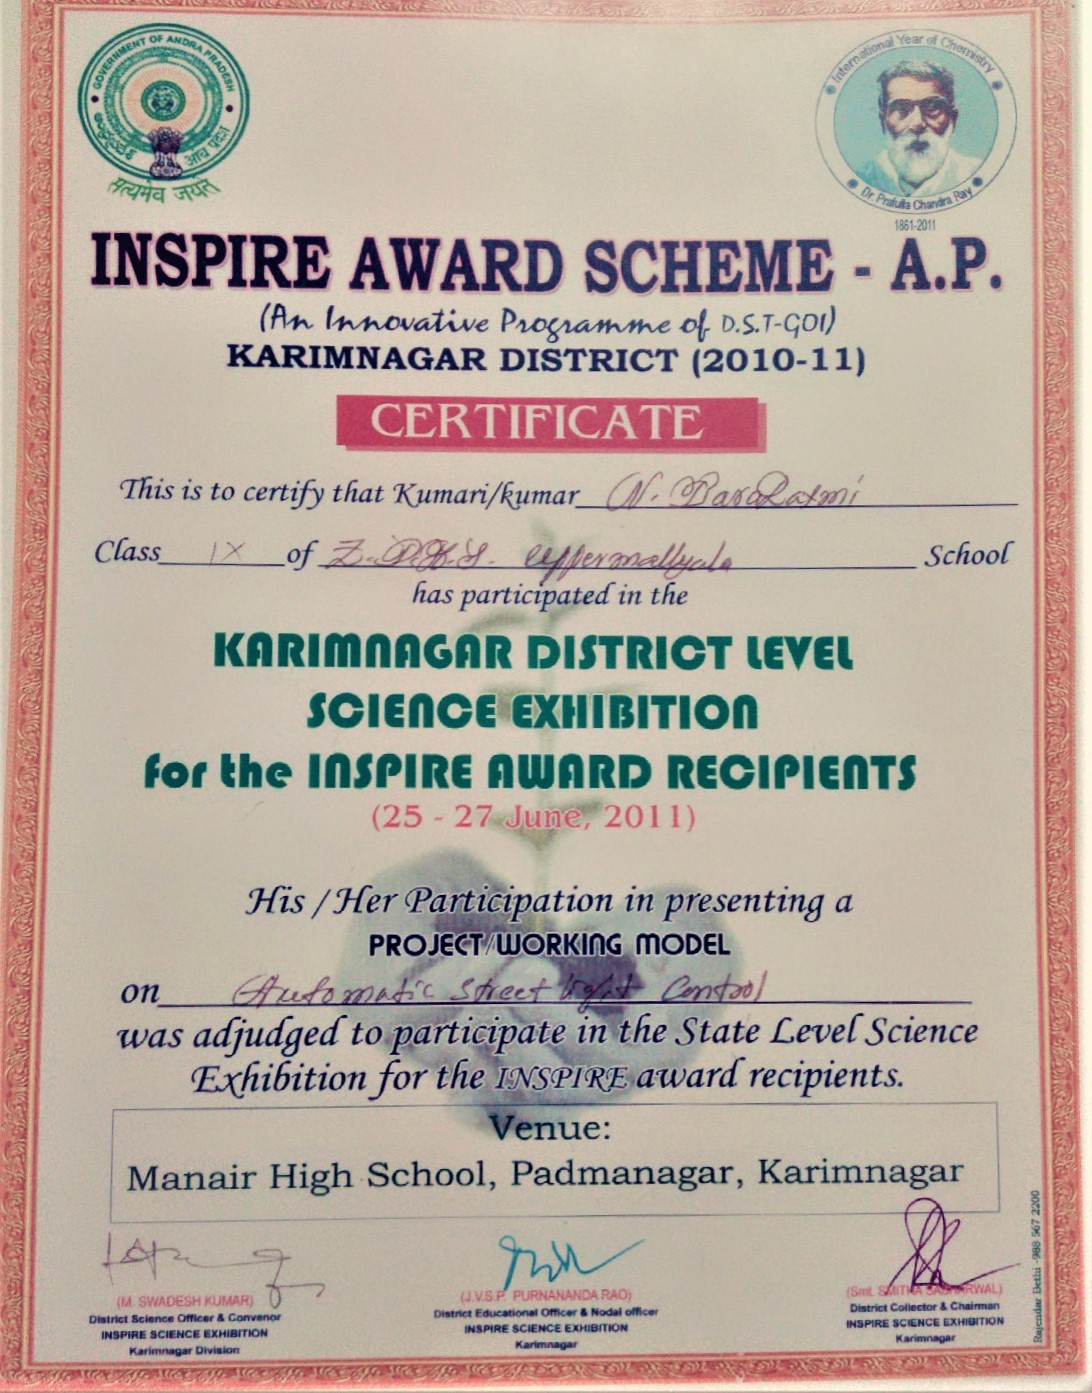 GOVERNMENT OF ANDRA PRADESH
सत्यमेव जयते
International Year of Chemistry
Dr. Prafulla Chandra Ray
1861-2011
INSPIRE AWARD SCHEME - A.P.
(An Innovative Programme of D.S.T-GOI)
KARIMNAGAR DISTRICT (2010-11)
CERTIFICATE
This is to certify that Kumari/kumar N.
Class IX of Z.P.H.S. uppermallyala School
has participated in the
KARIMNAGAR DISTRICT LEVEL
SCIENCE EXHIBITION
for the INSPIRE AWARD RECIPIENTS
(25 - 27 June, 2011)
His / Her Participation in presenting a
PROJECT/WORKING MODEL
on Automatic Street light Control
was adjudged to participate in the State Level Science
Exhibition for the INSPIRE award recipients.
Venue:
Manair High School, Padmanagar, Karimnagar
(M. SWADESH KUMAR)
District Science Officer & Convenor
INSPIRE SCIENCE EXHIBITION
Karimnagar Division
(J.V.S.P. PURNANANDA RAO)
District Educational Officer & Nodal officer
INSPIRE SCIENCE EXHIBITION
Karimnagar
(Smt. SMITHA SABHARWAL)
District Collector & Chairman
INSPIRE SCIENCE EXHIBITION
Karimnagar
Rajendar Bethi -988 567 2200